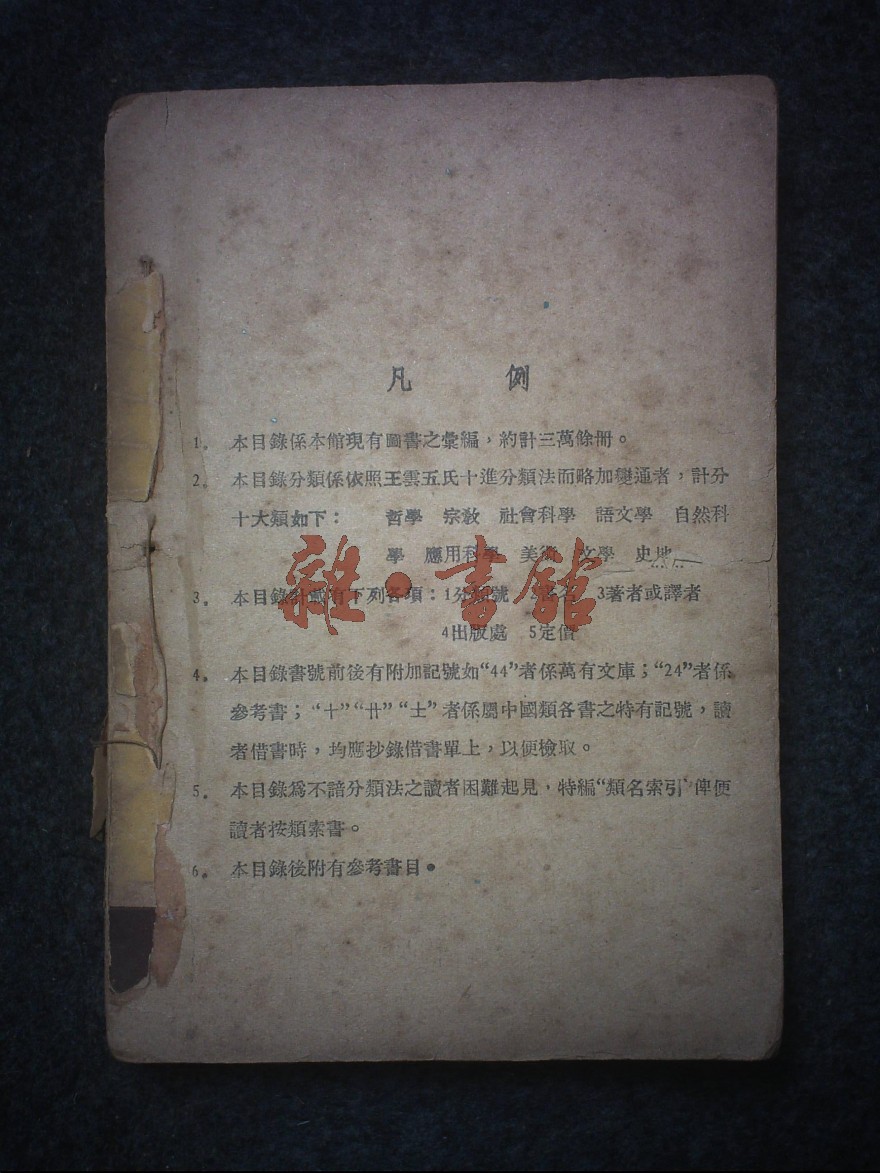 凡 例
1。 本目錄係本館現有圖書之彙編，約計三萬餘冊。
2。 本目錄分類係依照王雲五氏十進分類法而略加變通者，計分
十大類如下： 哲學 宗教 社會科學 語文學 自然科
學 應用科學 美術 文學 史地
3。 本目錄計載有下列各項：1分類號 2書名 3著者或譯者
4出版處 5定價
4。 本目錄書號前後有附加記號如“44”者係萬有文庫；“24”者係
參考書；“十”“廿”“士”者係屬中國類各書之特有記號，讀
者借書時，均應抄錄借書單上，以便檢取。
5。 本目錄爲不諳分類法之讀者困難起見，特編“類名索引”俾便
讀者按類索書。
6。 本目錄後附有參考書目。
雜·書館